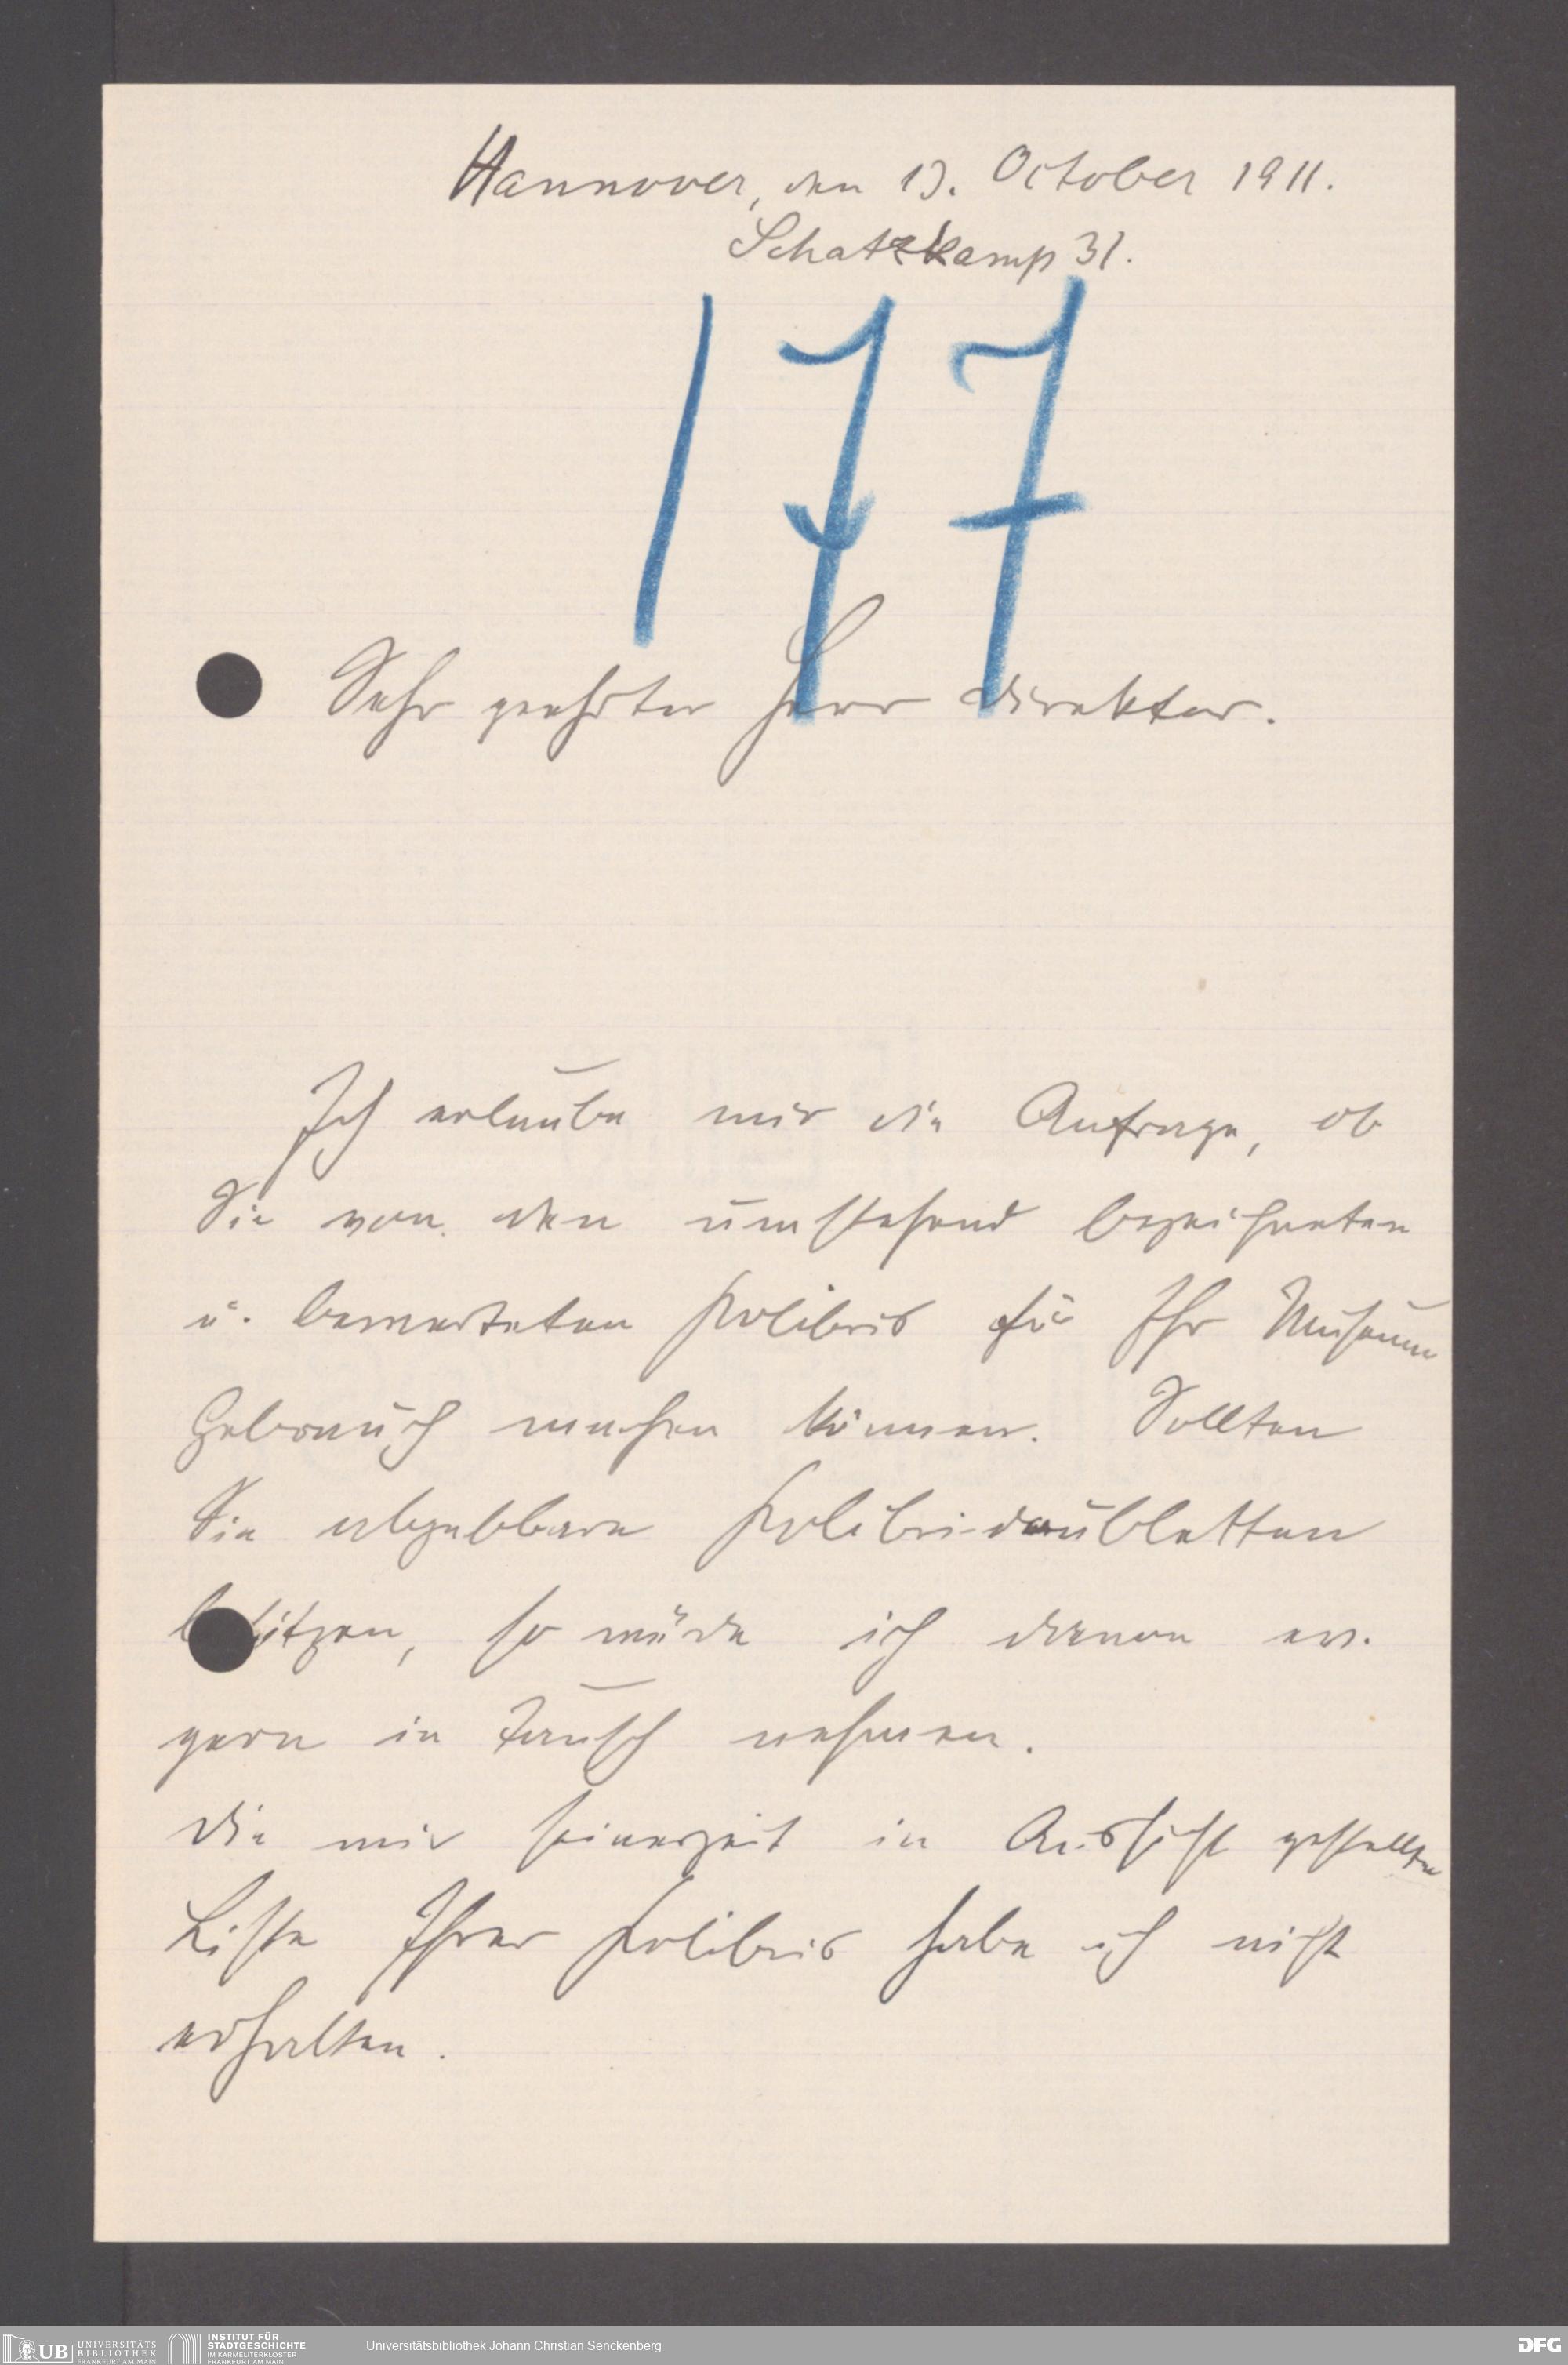 Hannover, den 13. October 1911.
Schatzkamp 31.
177
Sehr geehrter Herr Direktor.
Ich erlaube mir die Anfrage, ob
Sie von den umstehend bezeichneten
u. bewerteten Kolibris für Ihr Museum
Gebrauch machen können. Sollten
Sie abgebbare Kolibri-doubletten
besitzen, so würde ich davon ev.
gern in Tausch nehmen.
Die mir seinerzeit in Aussicht gestellte
Liste Ihrer Kolibris habe ich nicht
erhalten.
UB UNIVERSITÄTS BIBLIOTHEK FRANKFURT AM MAIN
INSTITUT FÜR STADTGESCHICHTE IM KARMELITERKLOSTER FRANKFURT AM MAIN
Universitätsbibliothek Johann Christian Senckenberg
DFG